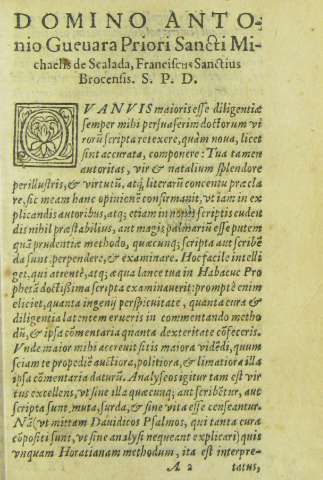 DOMINO ANTO-
nio Gueuara Priori Sancti Mi-
chaelis de Scalada, Franciscus Sanctius
Brocensis. S. P. D.
QVANVIS maioris esse diligentiæ
semper mihi persuaserim doctorum vi
rorũ scripta retexere, quàm noua, licet
sint accurata, componere: Tua tamen
autoritas, vir & natalium splendore
perillustris, & virtutũ, atq; literarũ concentu præcla
re, sic meam hanc opinionẽ confirmauit, vt iam in ex
plicandis autoribus, atq; etiam in nostris scriptis cudẽ
dis nihil præstabilius, aut magis palmariũ esse putem
quã prudentiæ methodo, quæcunq; scripta aut scribẽ
da sunt: perpendere, & examinare. Hoc facile intelli
get, qui attentè, atq; æqua lance tua in Habacuc Pro
phetã doctissima scripta examinauerit: promptè enim
eliciet, quanta ingenij perspicuitate, quanta cura &
diligentia latentem erueris in commentando metho
dũ, & ipsa cõmentaria quanta dexteritate cõfeceris.
Vnde maior mihi accreuit sitis maiora vidẽdi, quum
sciam te propediẽ auctiora, politiora, & limatiora illa
ipsa cõmentaria daturũ. Analyseos igitur tam est vir
tus excellens, vt sine illa quæcunq; aut scribẽtur, aut
scripta sunt, muta, surda, & sine vita esse censeantur.
Nã (vt mittam Dauidicos Psalmos, qui tanta cura
cõpositi sunt, vt sine analysi nequeant explicari) quis
vnquam Horatianam methodum, ita est interpre-
A 2 tatus,